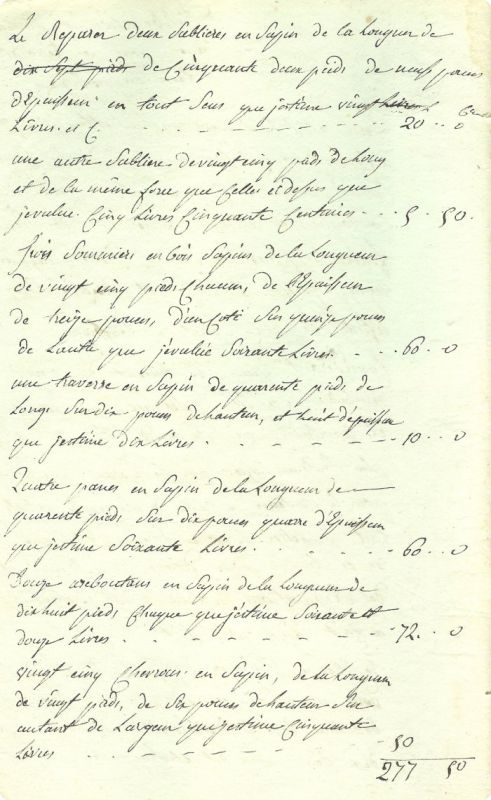 Le Reparer deux Sablieres en Sapin de la Longueur de
dix Sept pieds de Cinquante deux pieds de neuf pouces
d'Epaisseur en tout Sens que j'estime vingt
Livres. et C. 20 . . 0
une autre Sabliere de vingt cinq pieds de Long
et de la même force que Celles cidessus que
j'evalue Cinq Livres Cinquante Centimes - - 5 . 50.
trois Somiers en bois Sapin de la Longueur
de vingt cinq pieds Chacun, de l'Epaisseur
de treize pouces, d'un Coté Sur quinze pouces
de Lautre que j'évaluée Soixante Livres. - - 60 . 0
une traverse en Sapin de quarente pieds de
Longs Sur dix pouces de hauteur, et huit d'épaisseur
que j'estime dix Livres . - - - - - 10 . . 0
Quatre panes en Sapin de la Longueur de
quarente pieds Sur dix pouces quarre d'Epaisseur
que j'estime Soixante Livres . - - - - 60 . . 0
Douze areboutans en Sapin de la Longueur de
dix huit pieds Chaque que j'estime Soixante et
douze Livres . . - - - - - - 72. . 0
vingt cinq Chevrons en Sapin, de la Longueur
de vingt pieds, de Six pouces de hauteur Sur
autant de Largeur que j'estime Cinquante
Livres - - - - - 50
277 50